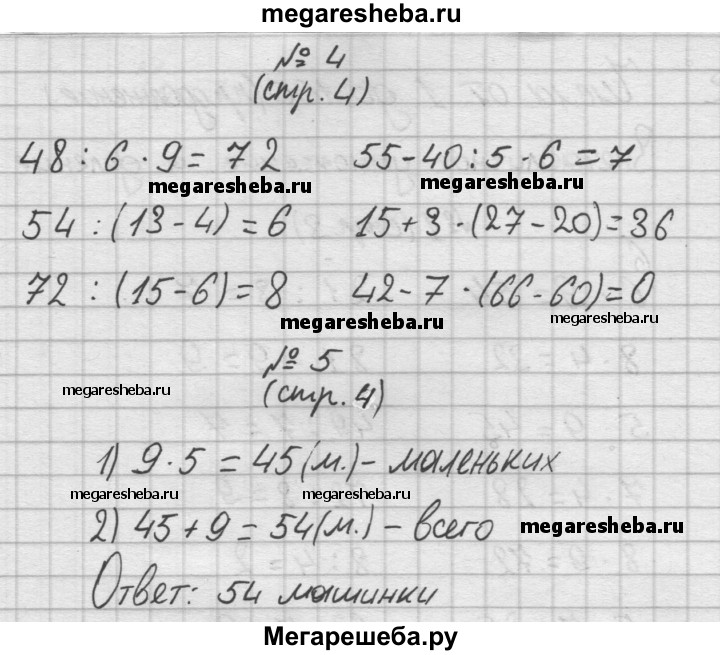 megaresheba.ru
№ 4
(стр. 4)
48 : 6 · 9 = 72 55-40:5·6=7
megaresheba.ru megaresheba.ru
54 : (13-4) = 6 15+3·(27-20)=36
72 : (15-6)=8 42-7·(66-60)=0
megaresheba.ru megaresheba.ru
№ 5
megaresheba.ru (стр. 4)
1) 9·5 = 45(м.)- маленьких
megaresheba.ru megaresheba.ru
2) 45+9=54(м.)- всего megaresheba.ru
Ответ: 54 машинки
Мегарешеба.ру